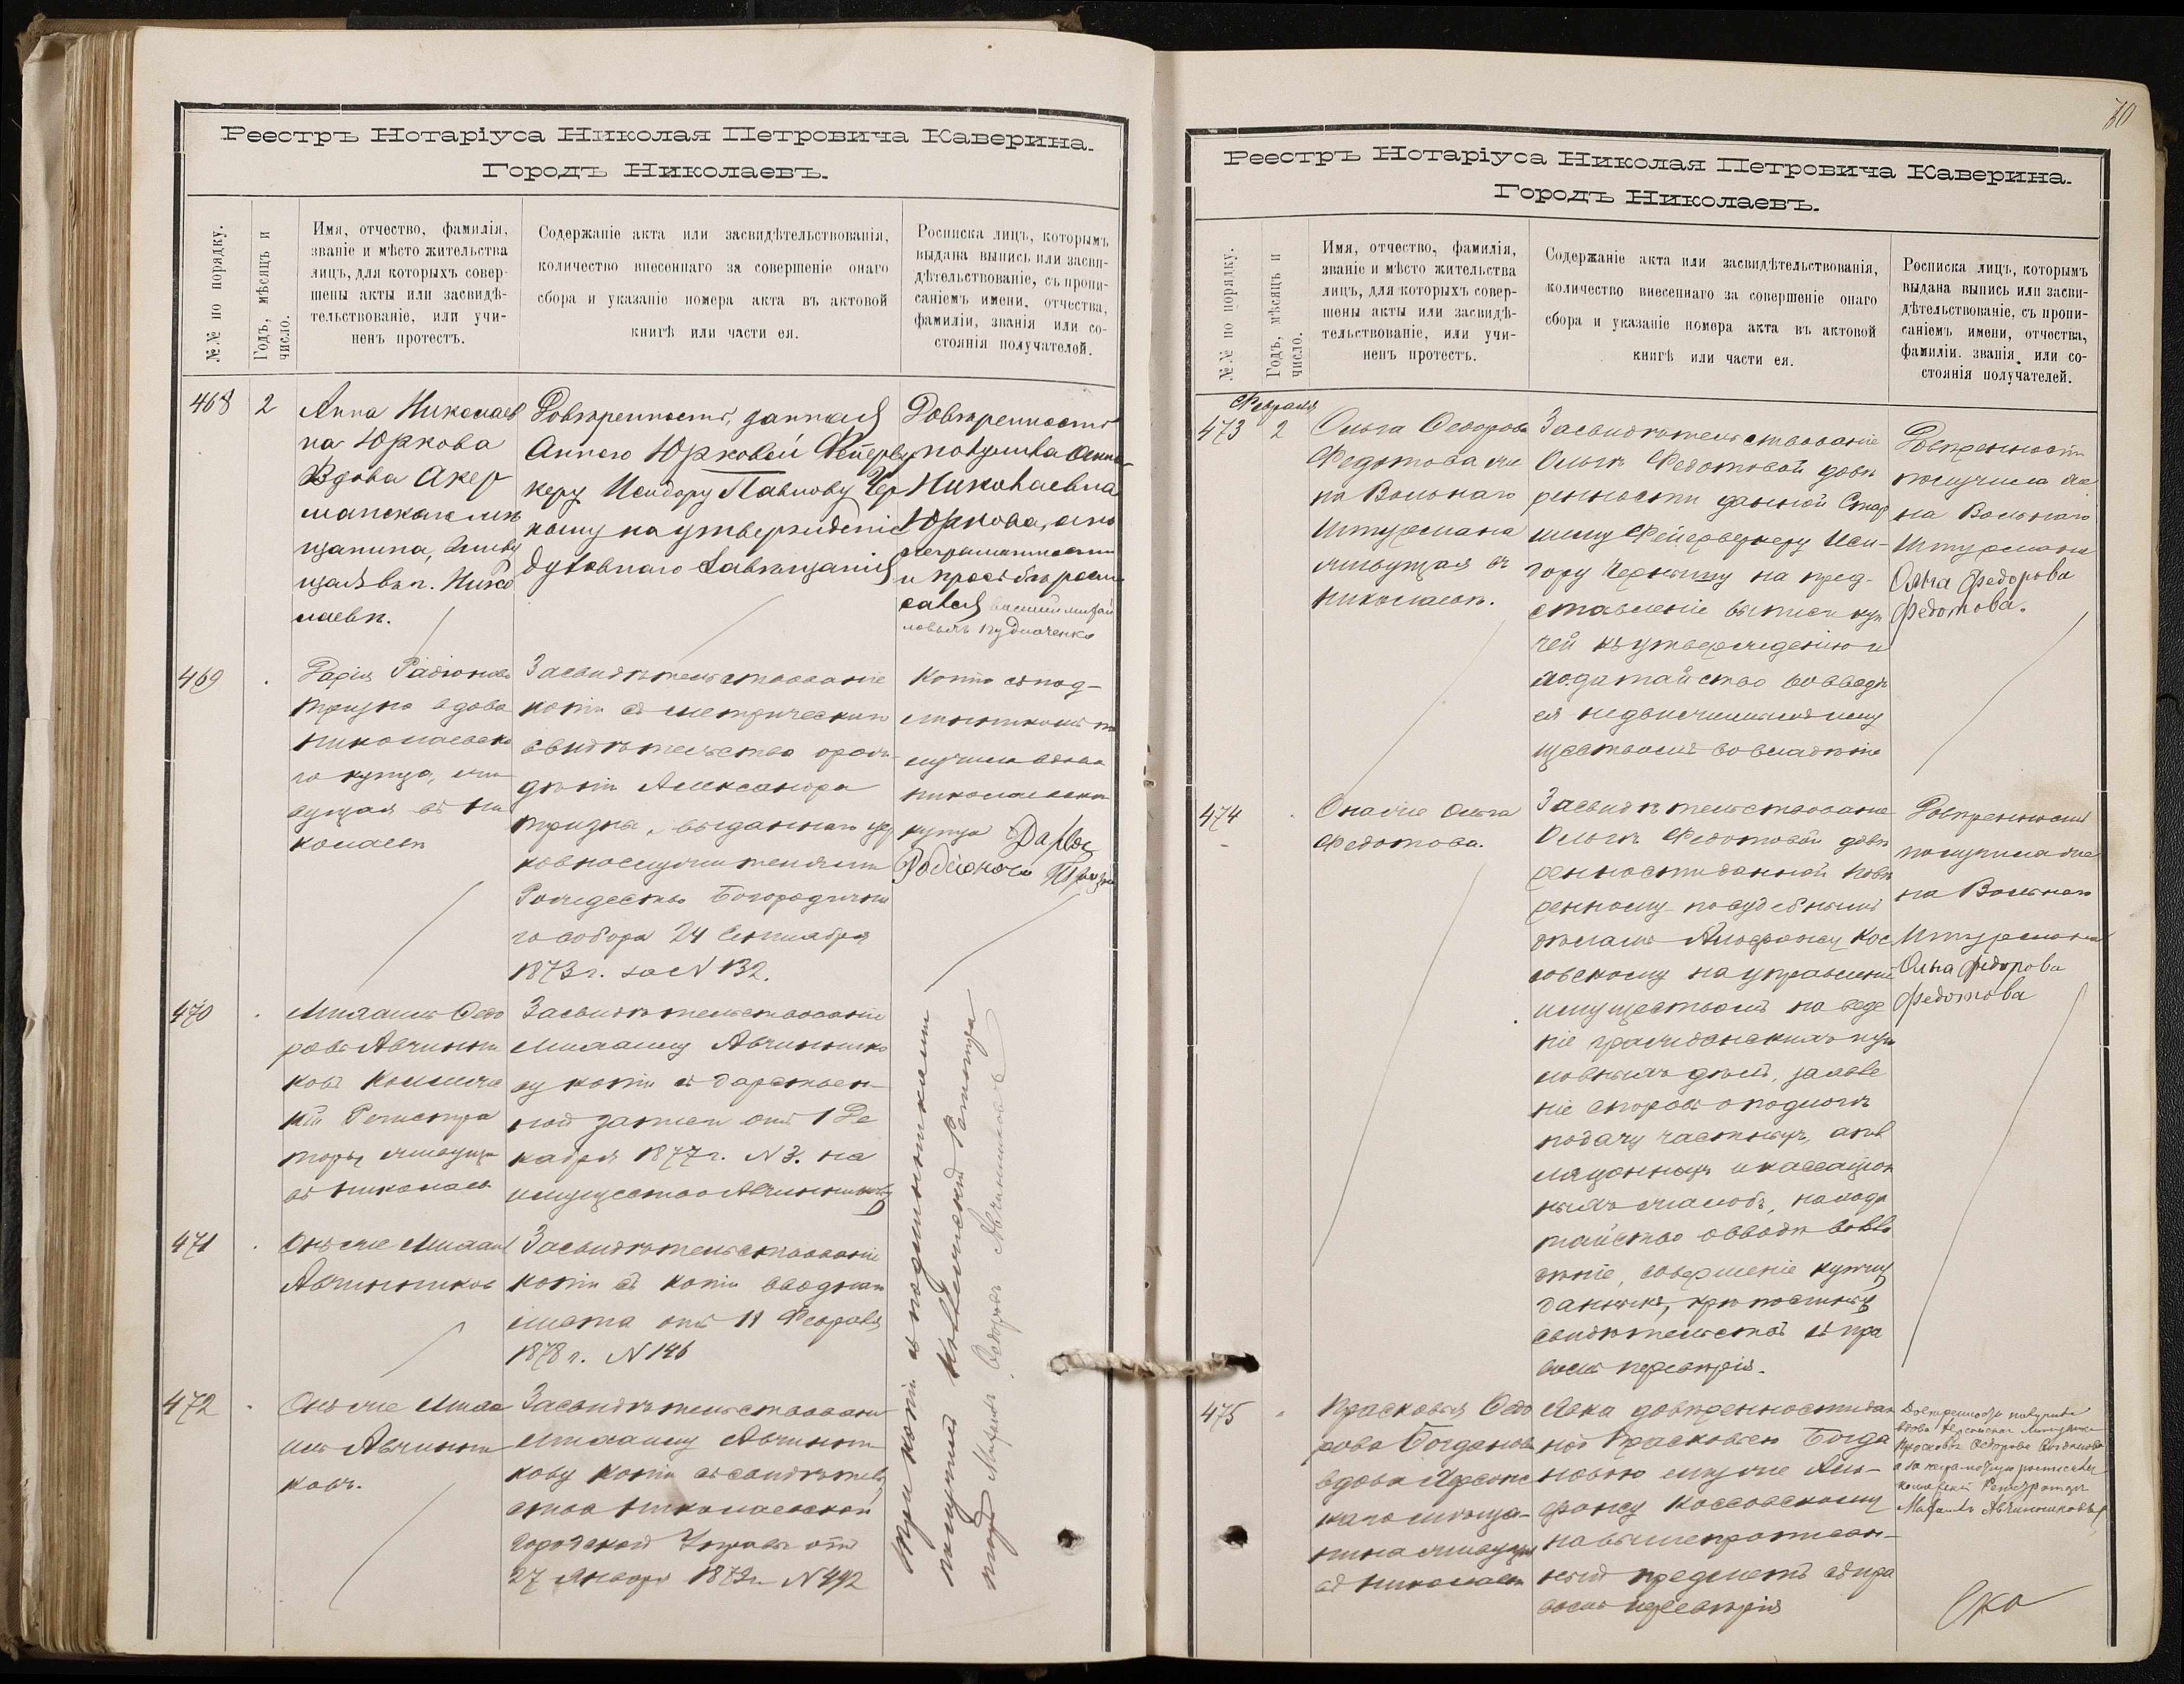 Реестръ Нотаріуса Николая Петровича Каверина.
Городъ Николаевъ.
№№ по порядку.
Годъ, мѣсяцъ и
число.
Имя, отчество, фамилія,
званіе и мѣсто жительства
лицъ, для которыхъ совер-
шены акты или засвидѣ-
тельствованіе, или учи-
ненъ протестъ.
Содержаніе акта или засвидѣтельствованія,
количество внесеннаго за совершеніе онаго
сбора и указаніе номера акта въ актовой
книгѣ или части ея.
Росписка лицъ, которымъ
выдана выпись или засви-
дѣтельствованіе, съ пропи-
саніемъ имени, отчества,
фамиліи, званія или со-
стоянія получателей.
468
2
Анна Николаев
на Юркова
Вдова Акер
манскаго мѣ
щанина, живу
щая въ г. Нико
лаевѣ.
Довѣренность, данная
Анною Юрковой Фейервер
керу Исидору Павлову Чер
ному на утвержденіе
духовнаго завѣщанія
Довѣренность
получила Анна
Николаевна
Юркова, а по
неграмотности
и просьбѣ роспи
сался Василий Михай
ловичъ
469
Дарія Радіонова
Тризна вдова
Николаевска
го купца, жи
вущая въ Ни
колаевѣ
Засвидѣтельствованіе
копіи съ метрическаго
свидѣтельства о рож
деніи Александра
Тризны, выданнаго цер
ковнослужителями
Рождество Богородична
го собора 24 Сентября
1873 г. за N 132.
Копію съ под-
линникомъ по
лучила вдова
Николаевска
купца Дарья
Родионова Тризна
470
Михаилъ Федо
ровъ Авчинни
ковъ Коллежс
кій Регистра
торъ живущій
въ Николаевѣ
Засвидѣтельствованіе
Михаилу Авчиннико
ву копіи съ дарствен-
ной записи отъ 1 Де
кабря 1877 г. N 3. на
имущество Авчинникову
471
Онъ же Михаилъ
Авчинниковъ
Засвидѣтельствованіе
копіи съ копіи вводнаго
листа отъ 11 Февраля
1878 г. N 146
472
Онъ же Миха
илъ Авчинни
ковъ.
Засвидѣтельствованіе
Михаилу Авчинни
кову копіи съ свидѣтель
ства Николаевской
Городской Управы отъ
27 Января 1872 г. N 442
Три копіи съ подлинниками
получилъ Коллежскій Регистра
торъ Михаилъ Федоровъ Авчинниковъ
70
Реестръ Нотаріуса Николая Петровича Каверина.
Городъ Николаевъ.
№№ по порядку.
Годъ, мѣсяцъ и
число.
Имя, отчество, фамилія,
званіе и мѣсто жительства
лицъ, для которыхъ совер-
шены акты или засвидѣ-
тельствованіе, или учи-
ненъ протестъ.
Содержаніе акта или засвидѣтельствованія,
количество внесеннаго за совершеніе онаго
сбора и указаніе номера акта въ актовой
книгѣ или части ея.
Росписка лицъ, которымъ
выдана выпись или засви-
дѣтельствованіе, съ пропи-
саніемъ имени, отчества,
фамиліи. званія или со-
стоянія получателей.
Февраля
473
2
Ольга Федорова
Федотова же
на Вольнаго
Штурмана
живущая въ
Николаевѣ.
Засвидѣтельствованіе
Ольгѣ Федотовой довѣ
ренности данной Стар
шему Фейерверкеру Иси-
дору Черному на пред-
ставленіе выписи куп
чей къ утвержденію и
ходатайство о вводѣ
ея недвижимымъ иму
ществомъ во владѣніе
Довѣренность
получила же
на Вольнаго
Штурмана
Ольга Федорова
Федотова.
474
Она же Ольга
Федотова.
Засвидѣтельствованіе
Ольгѣ Федотовой довѣ
ренности данной повѣ
ренному по судебнымъ
дѣламъ Альфонсу Кос
совскому на управленіе
имуществомъ на веде
ніе гражданскихъ и уго
ловныхъ дѣлъ, заявле
ніе споровъ о подлогѣ
подачу частныхъ, апел
ляціонныхъ и кассаціон
ныхъ жалобъ, на хода
тайство о вводѣ во вла
дѣніе, совершеніе купчих
данныхъ, крѣпостныхъ
свидѣтельствъ съ пра
вомъ передовѣрія.
Довѣренность
получила же
на Вольнаго
Штурмана
Ольга Федорова
Федотова
475
Прасковья Федо
рова Богданова
вдова Херсонс
каго мѣща-
нина живущая
въ Николаевѣ
Явка довѣренности дан
ной Прасковьею Богда
новою ему же Аль-
фонсу Коссовскому
на вышепрописан-
ный предметъ съ пра
вомъ передовѣрія
Довѣренность получила
вдова Херсонскаго мѣщанина
Прасковья Федорова Богданова
а за неграмотную росписался
коллежскій Регистраторъ
Михаилъ Авчинниковъ